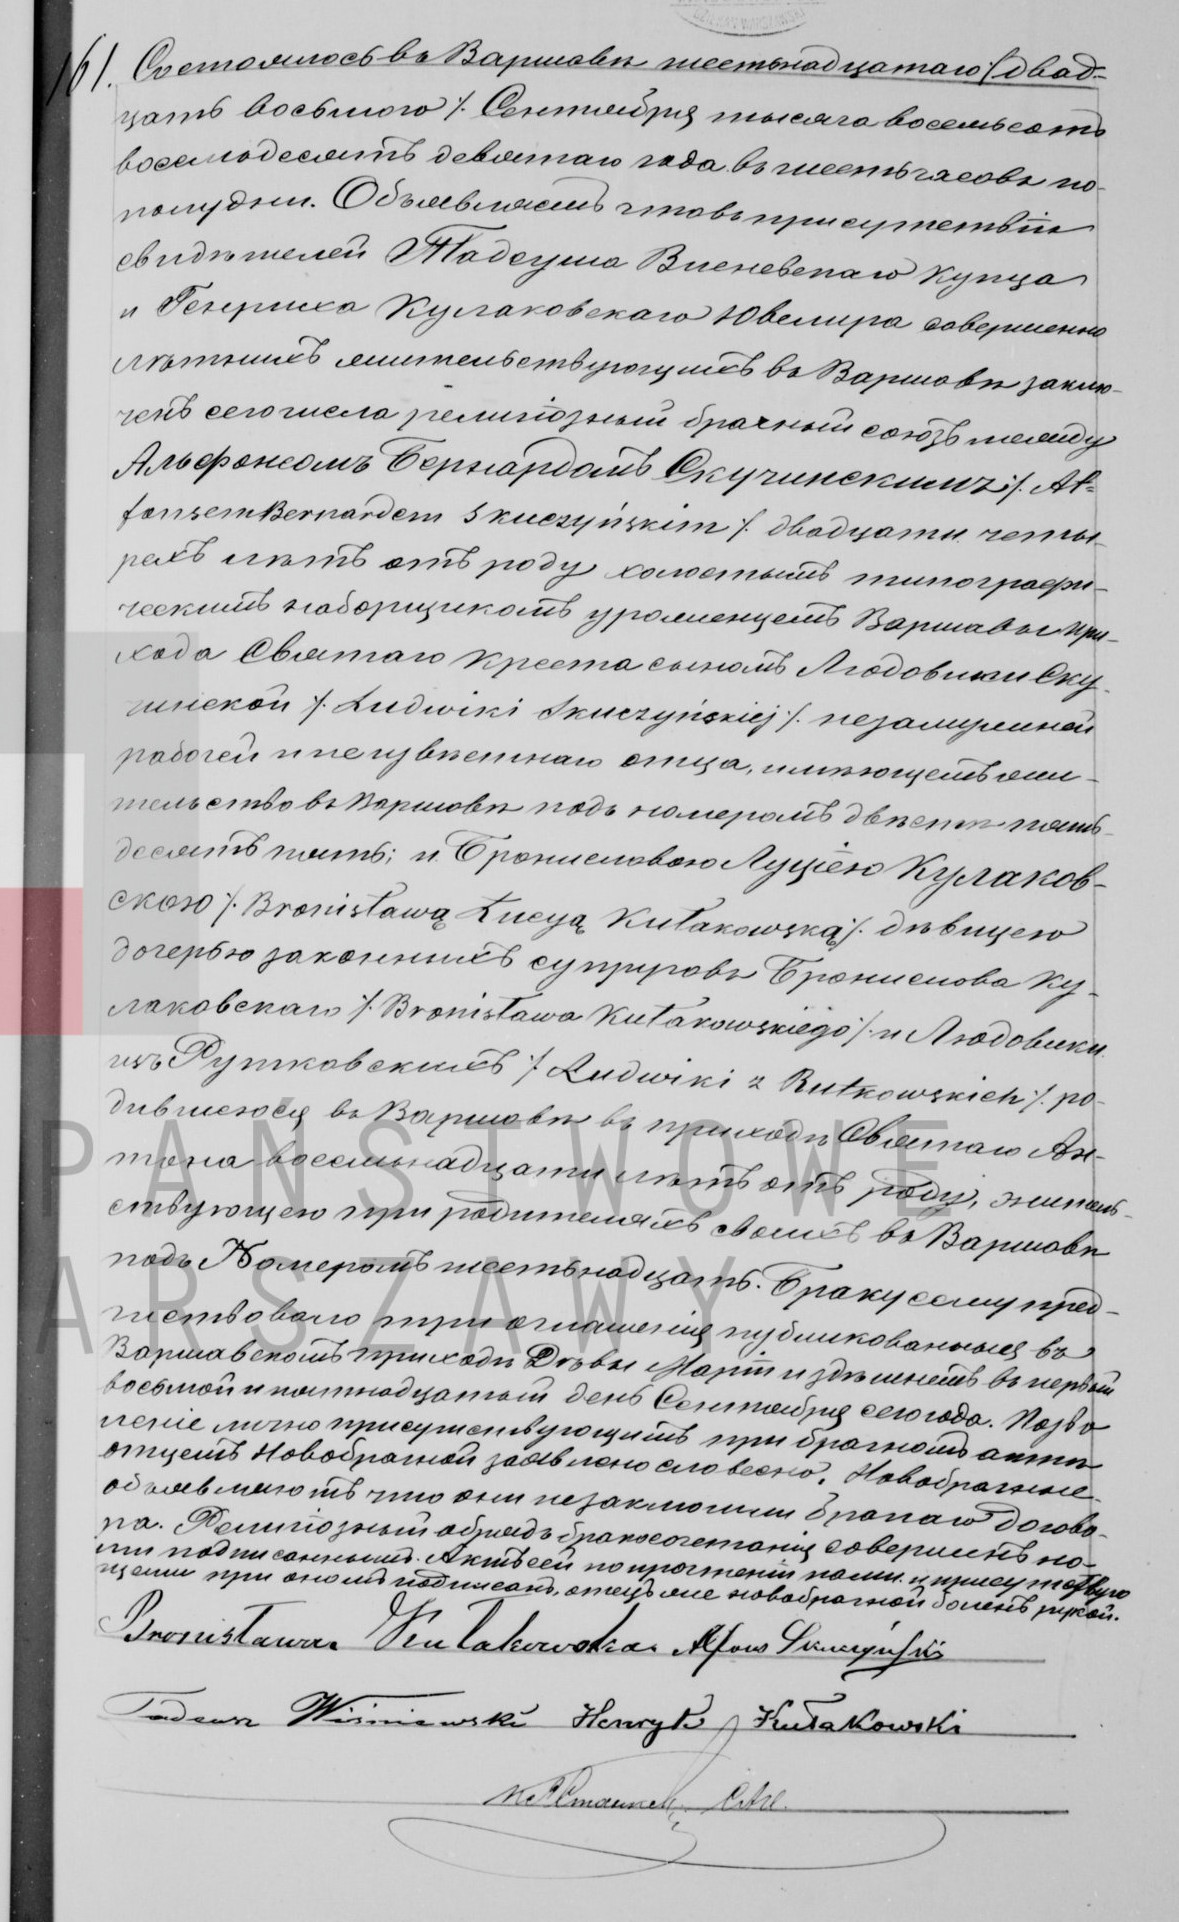 161. Состоялось въ Варшавѣ шестьнадцатаго /: двад-
цать восьмого /: Сентября тысяча восемьсотъ
восемьдесятъ девятаго года въ шесть часовъ по-
полудни. Объявляемъ что въ присутствіи
свидѣтелей Тадеуша Висневскаго купца
и Генриха Кулаковскаго Ювелира совершенно
лѣтнихъ жительствующихъ въ Варшавѣ заклю-
ченъ сего числа религіозный брачный союзъ между
Альфонсомъ Бернардомъ Скучинскимъ /: Al=
fonsem Bernardem Skuczyńskim /: двадцати четы-
рехъ лѣтъ отъ роду холостымъ типографи-
ческимъ наборщикомъ уроженцемъ Варшавы при-
хода Святаго Креста сыномъ Людовики Ску-
чинской /: Ludwiki Skuczyńskiej /: незамужней
рабочей и неизвѣстнаго отца, имѣющемъ жи-
тельство въ Варшавѣ подъ номеромъ двѣсти пять-
десятъ пять; и Брониславою Луціею Кулаков-
скою /: Bronisławą Łucyą Kułakowską /: дѣвицею
дочерью законныхъ супруговъ Бронислова Ку-
лаковскаго /: Bronisława Kułakowskiego /: и Людовики
изъ Рутковскихъ /: Ludwiki z Rutkowskich /: ро-
дившеюся въ Варшавѣ въ приходѣ Святаго Ан-
тона восемьнадцати лѣтъ отъ роду, житель-
ствующею при родителяхъ своихъ въ Варшавѣ
подъ Номеромъ шестьнадцать. Браку сему пред-
шествовало три оглашенія публикованныя въ
Варшавскомъ приходѣ Дѣвы Маріи и здѣшнемъ въ первый
восьмой и пятнадцатый день Сентября сего года. Позво
леніе лично присутствующимъ при брачномъ актѣ
отцемъ Новобрачной заявлено словесно. Новобрачные
объявляютъ что они незаключили брачнаго догово-
ра. Религіозный обрядъ бракосочетанія совершенъ на-
ми подписаннымъ. Актъ сей по прочтеніи нами и присутствую
щими при ономъ подписанъ, отецъ же новобрачной боленъ рукой.
Bronisława Kułakowska Alfons Skuczyński
Tadeusz Wiśniewski Henryk Kułakowski
PAŃSTWOWE
ARSZAWY